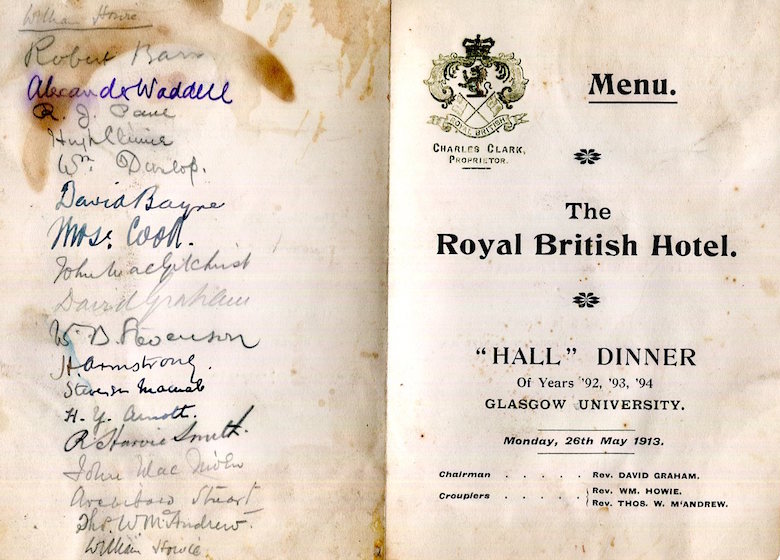 William Howie
Robert Barr
Alexander Waddell
R. J. Pane
Hugh
Wm. Dunlop.
David Bayne
Mose Cook.
John MacGilchrist
David Graham
W. D. Stevenson
H. Armstrong.
Stevenson Macnab
H. Y. Arnott.
R Harvie Smith.
John Mac Niven
Archibald Stuart
Thos. W. McAndrew.
William Howie.
ROYAL BRITISH
CHARLES CLARK,
PROPRIETOR.
Menu.
The
Royal British Hotel.
"HALL" DINNER
Of Years '92, '93, '94
GLASGOW UNIVERSITY.
Monday, 26th May 1913.
Chairman . . . . . Rev. DAVID GRAHAM.
Croupiers . . . . . Rev. WM. HOWIE.
Rev. THOS. W. M'ANDREW.